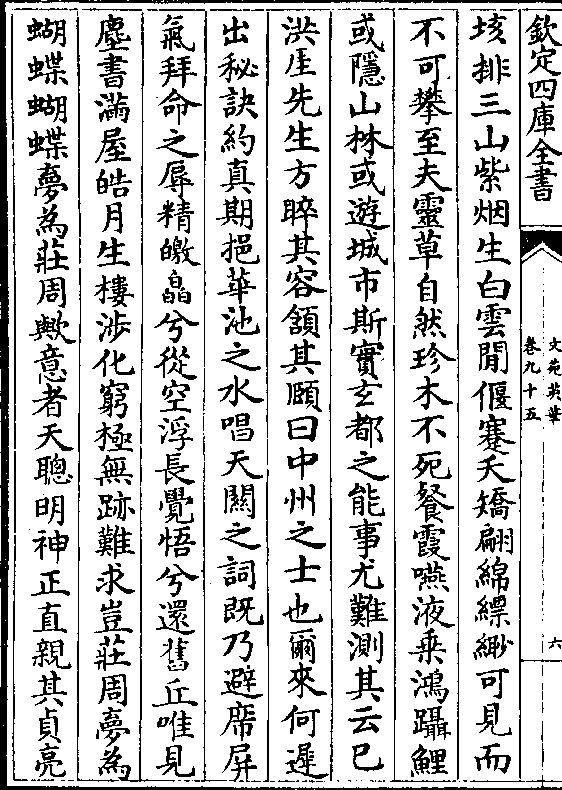 欽定四庫全書
文苑英華
卷九十五
六
垓排三山紫烟生白雲閒偃蹇夭矯翩綿縹緲可見而
不可攀至夫靈草自然珍木不死餐霞嚥液乗鴻躡鯉
或隱山林或遊城市斯實玄都之能事尤難測其云已
洪厓先生方睟其容頷其頤曰中州之士也爾來何遲
出秘訣約真期挹華池之水唱天關之詞既乃避席屏
氣拜命之辱精皦皛兮從空浮長覺悟兮還舊丘唯見
塵書滿屋皓月生樓涉化窮極無跡難求豈莊周夢為
蝴蝶蝴蝶夢為莊周歟意者天聰明神正直親其貞亮